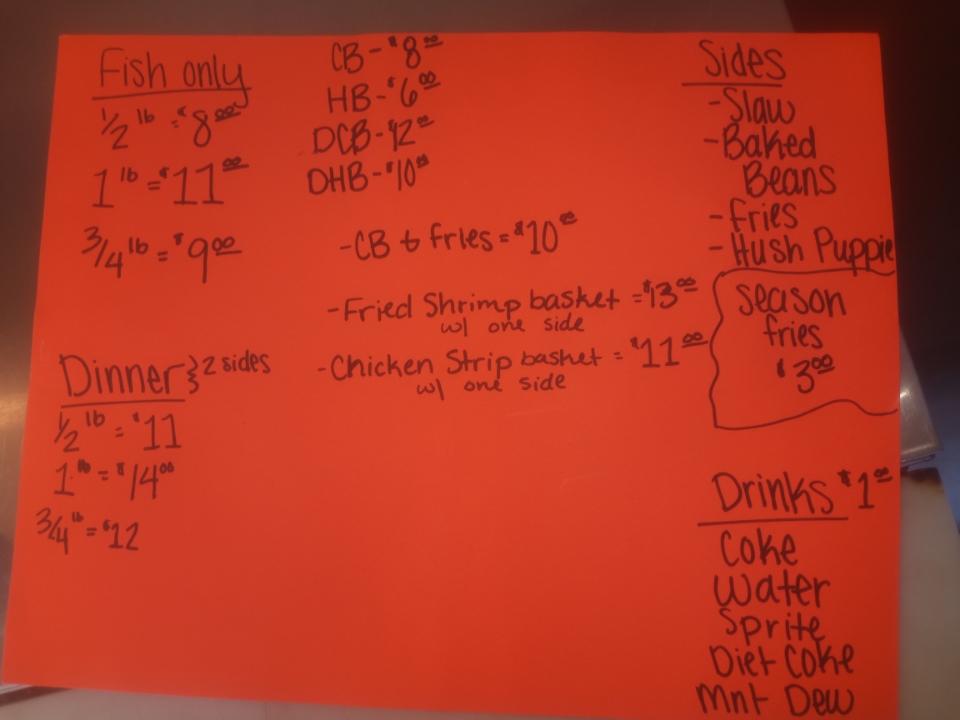 Fish only
1/2 lb = $8.00
1 lb = $11.00
3/4 lb = $9.00
Dinner } 2 sides
1/2 lb = $11
1 lb = $14.00
3/4 lb = $12
CB - $8.00
HB - $6.00
DCB - $12.00
DHB - $10.00
- CB & fries = $10.00
- Fried Shrimp basket = $13.00
w/ one side
- Chicken Strip basket = $11.00
w/ one side
Sides
- Slaw
- Baked
Beans
- Fries
- Hush Puppie
season
fries
$3.00
Drinks $1.00
Coke
Water
Sprite
Diet Coke
Mnt Dew